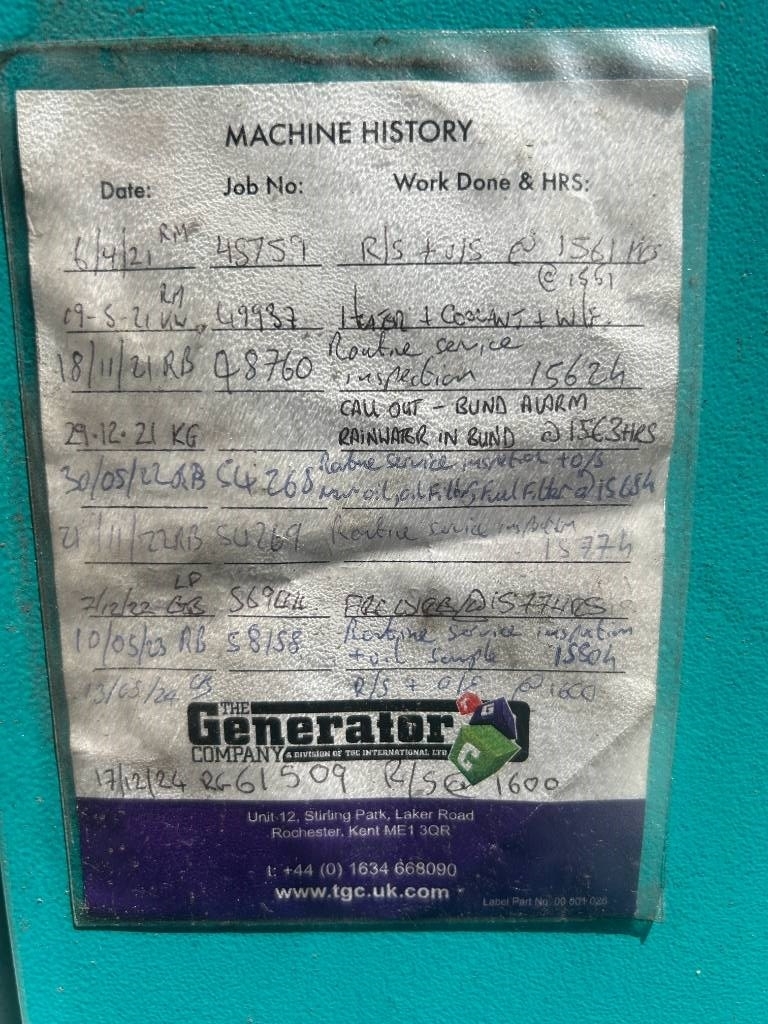 MACHINE HISTORY
Date: Job No: Work Done & HRS:
RM
6/4/21 45759 R/S + O/S @ 1561 HRS
@ 1561
09-5-21 49937 + COOLANT +
18/11/21 RB 48760 Routine service
inspection 1562h
CALL OUT - BUND ALARM
29.12.21 KG RAINWATER IN BUND @ 1563HRS
30/05/22 RB 54268 Routine service inspection + o/s
oil, oil filter, fuel filter @ 1568h
21/11/22 RB 54269 Routine service inspection
1577h
LP
7/12/22 @ 1577HRS
10/05/23 RB 58158 Routine service inspection
+ oil sample 1580h
13/05/24 R/S + O/S @ 1600
THE
Generator
COMPANY A DIVISION OF TGC INTERNATIONAL LTD
T G C
17/12/24 RG 61509 R/S @ 1600
Unit 12, Stirling Park, Laker Road
Rochester, Kent ME1 3QR
t: +44 (0) 1634 668090
www.tgc.uk.com
Label Part No. 00 601 026